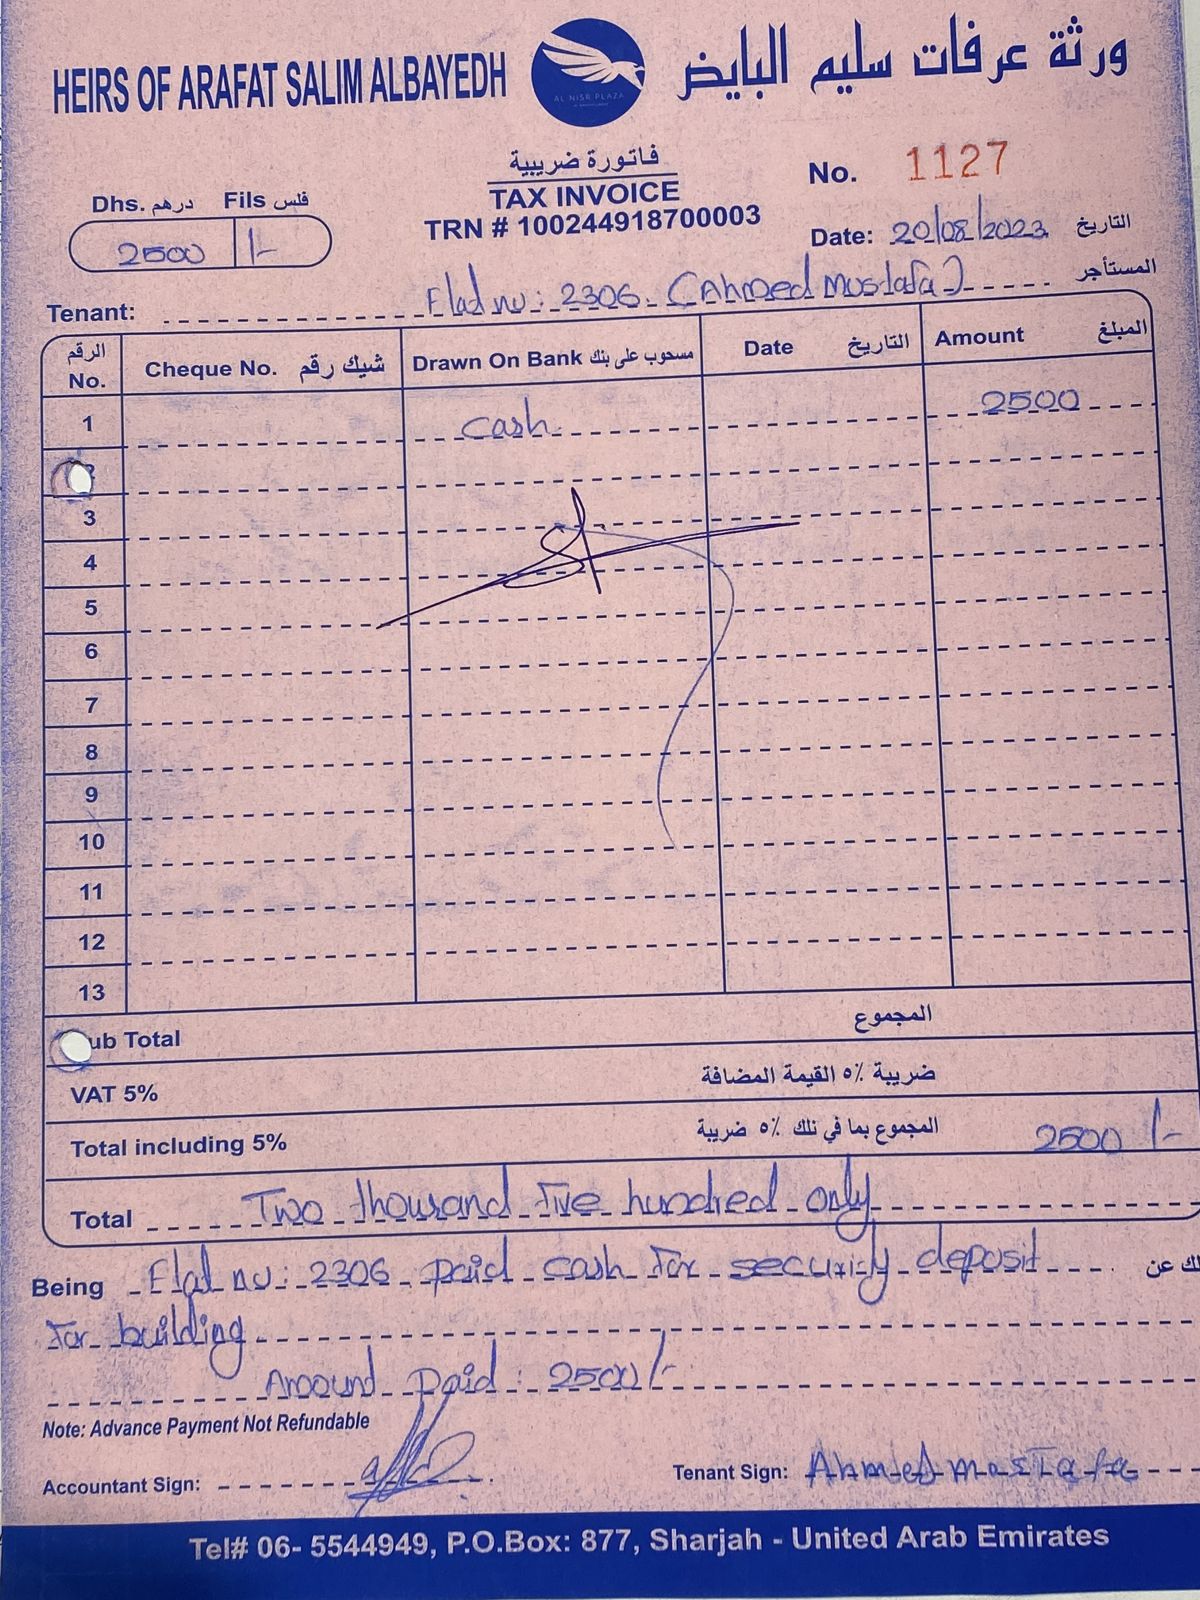 HEIRS OF ARAFAT SALIM ALBAYEDH
AL NISR PLAZA
ورثة عرفات سليم البايض
فاتورة ضريبية
TAX INVOICE
TRN # 100244918700003
No. 1127
Dhs. درهم Fils فلس
2500 /-
Date: 20/08/2023 التاريخ
Tenant: Flat no: 2306 (Ahmed Mustafa) المستأجر
الرقم No. Cheque No. شيك رقم Drawn On Bank مسحوب على بنك Date التاريخ Amount المبلغ
1 cash 2500
3
4
5
6
7
8
9
10
11
12
13
ub Total المجموع
VAT 5% ضريبة ٥٪ القيمة المضافة
Total including 5% المجموع بما في تلك ٥٪ ضريبة 2500 /-
Total Two thousand five hundred only
Being Flat no: 2306 paid cash for security deposit لك عن
for building
Amount paid: 2500/-
Note: Advance Payment Not Refundable
Accountant Sign:
Tenant Sign: Ahmed mosTafa
Tel# 06- 5544949, P.O.Box: 877, Sharjah - United Arab Emirates